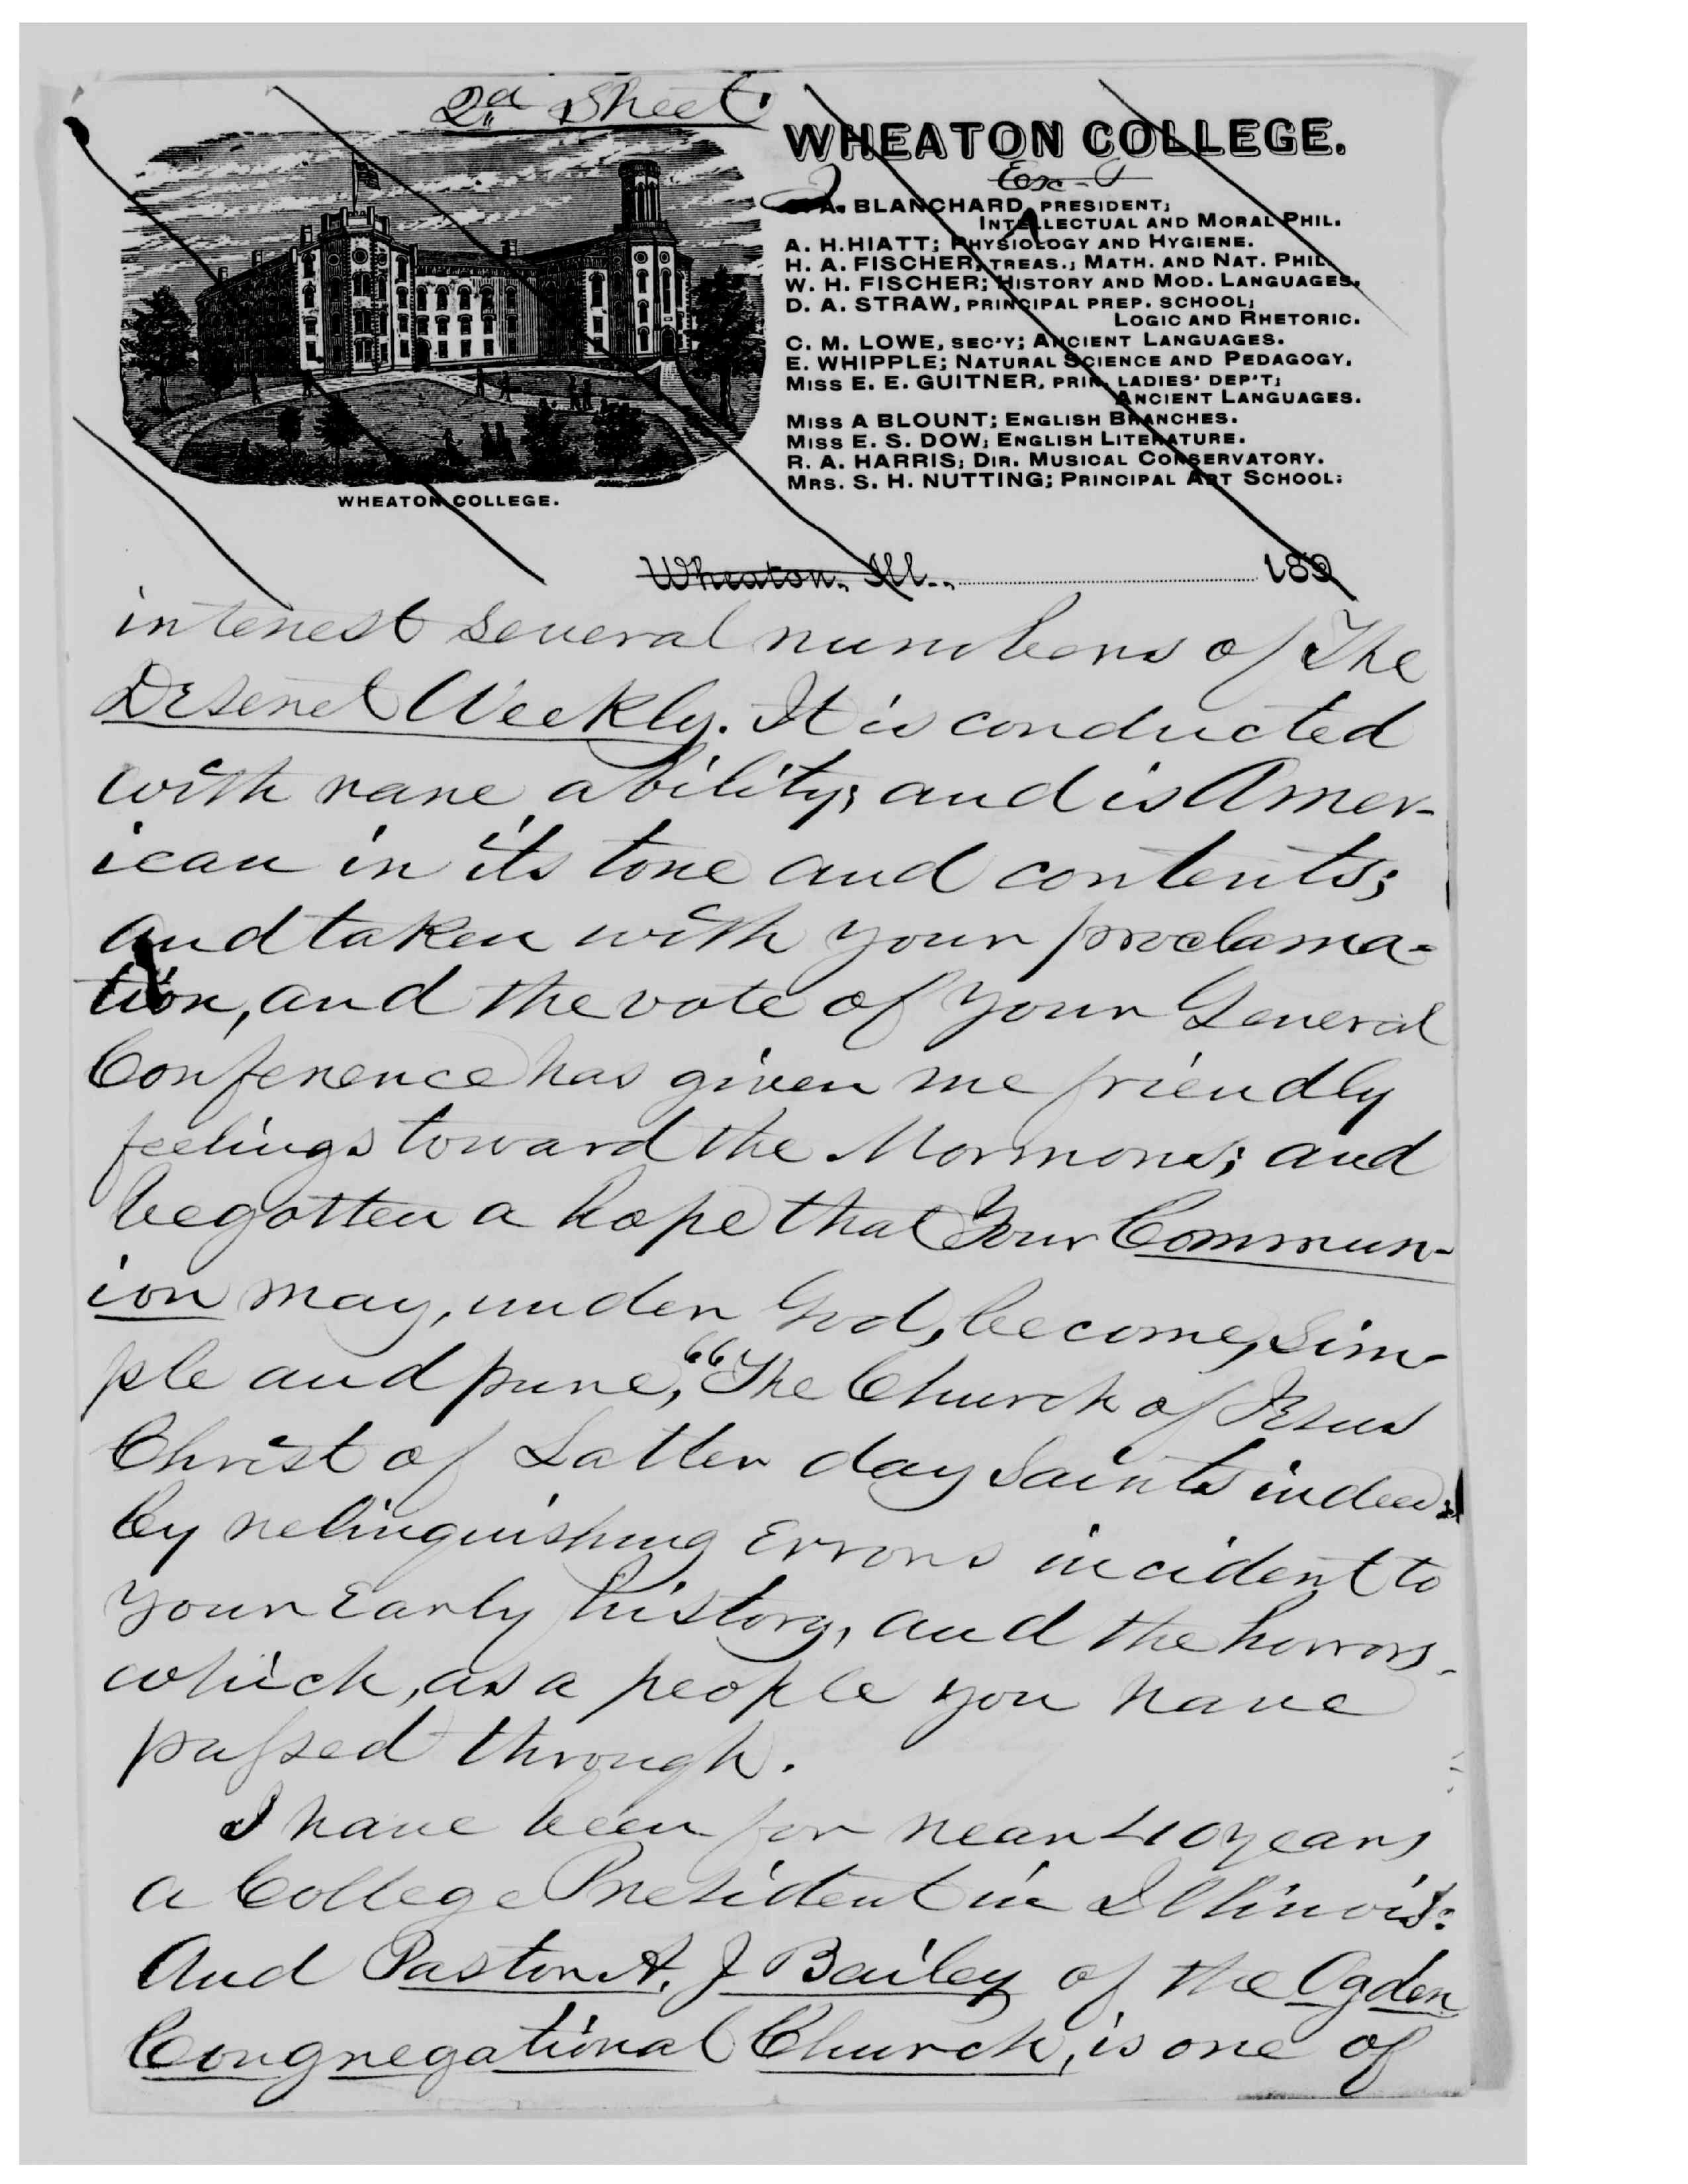 2d Sheet.
WHEATON COLLEGE.
Ex-
J. A. BLANCHARD, PRESIDENT;
INTELLECTUAL AND MORAL PHIL.
A. H. HIATT; PHYSIOLOGY AND HYGIENE.
H. A. FISCHER, TREAS.; MATH. AND NAT. PHIL.
W. H. FISCHER; HISTORY AND MOD. LANGUAGES.
D. A. STRAW, PRINCIPAL PREP. SCHOOL;
LOGIC AND RHETORIC.
C. M. LOWE, SEC'Y; ANCIENT LANGUAGES.
E. WHIPPLE; NATURAL SCIENCE AND PEDAGOGY.
MISS E. E. GUITNER, PRIN. LADIES' DEP'T;
ANCIENT LANGUAGES.
MISS A BLOUNT; ENGLISH BRANCHES.
MISS E. S. DOW; ENGLISH LITERATURE.
R. A. HARRIS; DIR. MUSICAL CONSERVATORY.
MRS. S. H. NUTTING; PRINCIPAL ART SCHOOL:
WHEATON COLLEGE.
Wheaton, Ill., 189
interest several numbers of The
Deseret Weekly. It is conducted
with rare ability; and is Amer-
ican in its tone and contents;
and taken with your proclama-
tion, and the vote of your General
Conference has given me friendly
feelings toward the Mormons; and
begotten a hope that Your Commun-
ion may, under God, become, sim-
ple and pure, "The Church of Jesus
Christ of Latter day Saints indeed:
by relinquishing Errors incident to
your Early history, and the horrors
which, as a people you have
passed through.
I have been for near 40 years
a College President in Illinois:
And Pastor A. J Bailey of the Ogden
Congregational Church, is one of